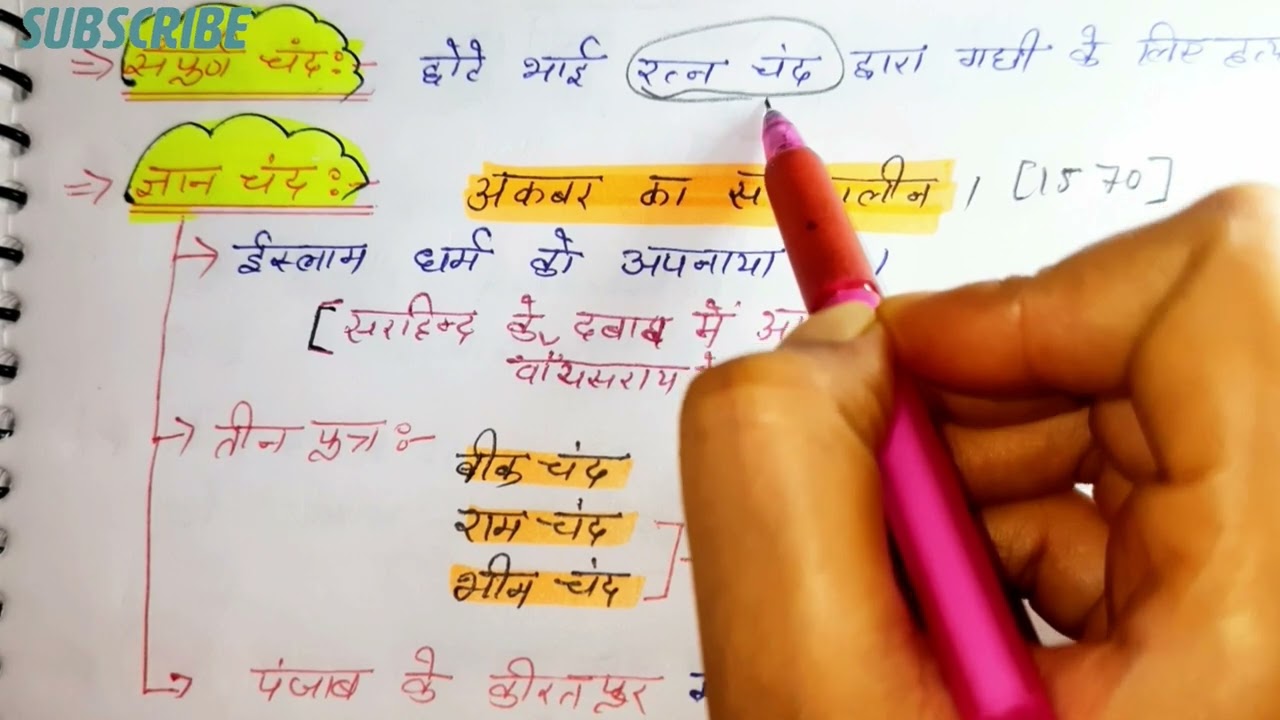 SUBSCRIBE
⇒ संपूर्ण चंद:- छोटे भाई रत्न चंद द्वारा गद्दी के लिए
⇒ ज्ञान चंद:- अकबर का । [1570]
→ ईस्लाम धर्म को अपनाया ।
[सरहिन्द के दबाब में
वॉयसराय
→ तीन पुत्र:-
बीक चंद
राम चंद
भीम चंद
→ पंजाब के कीरतपुर